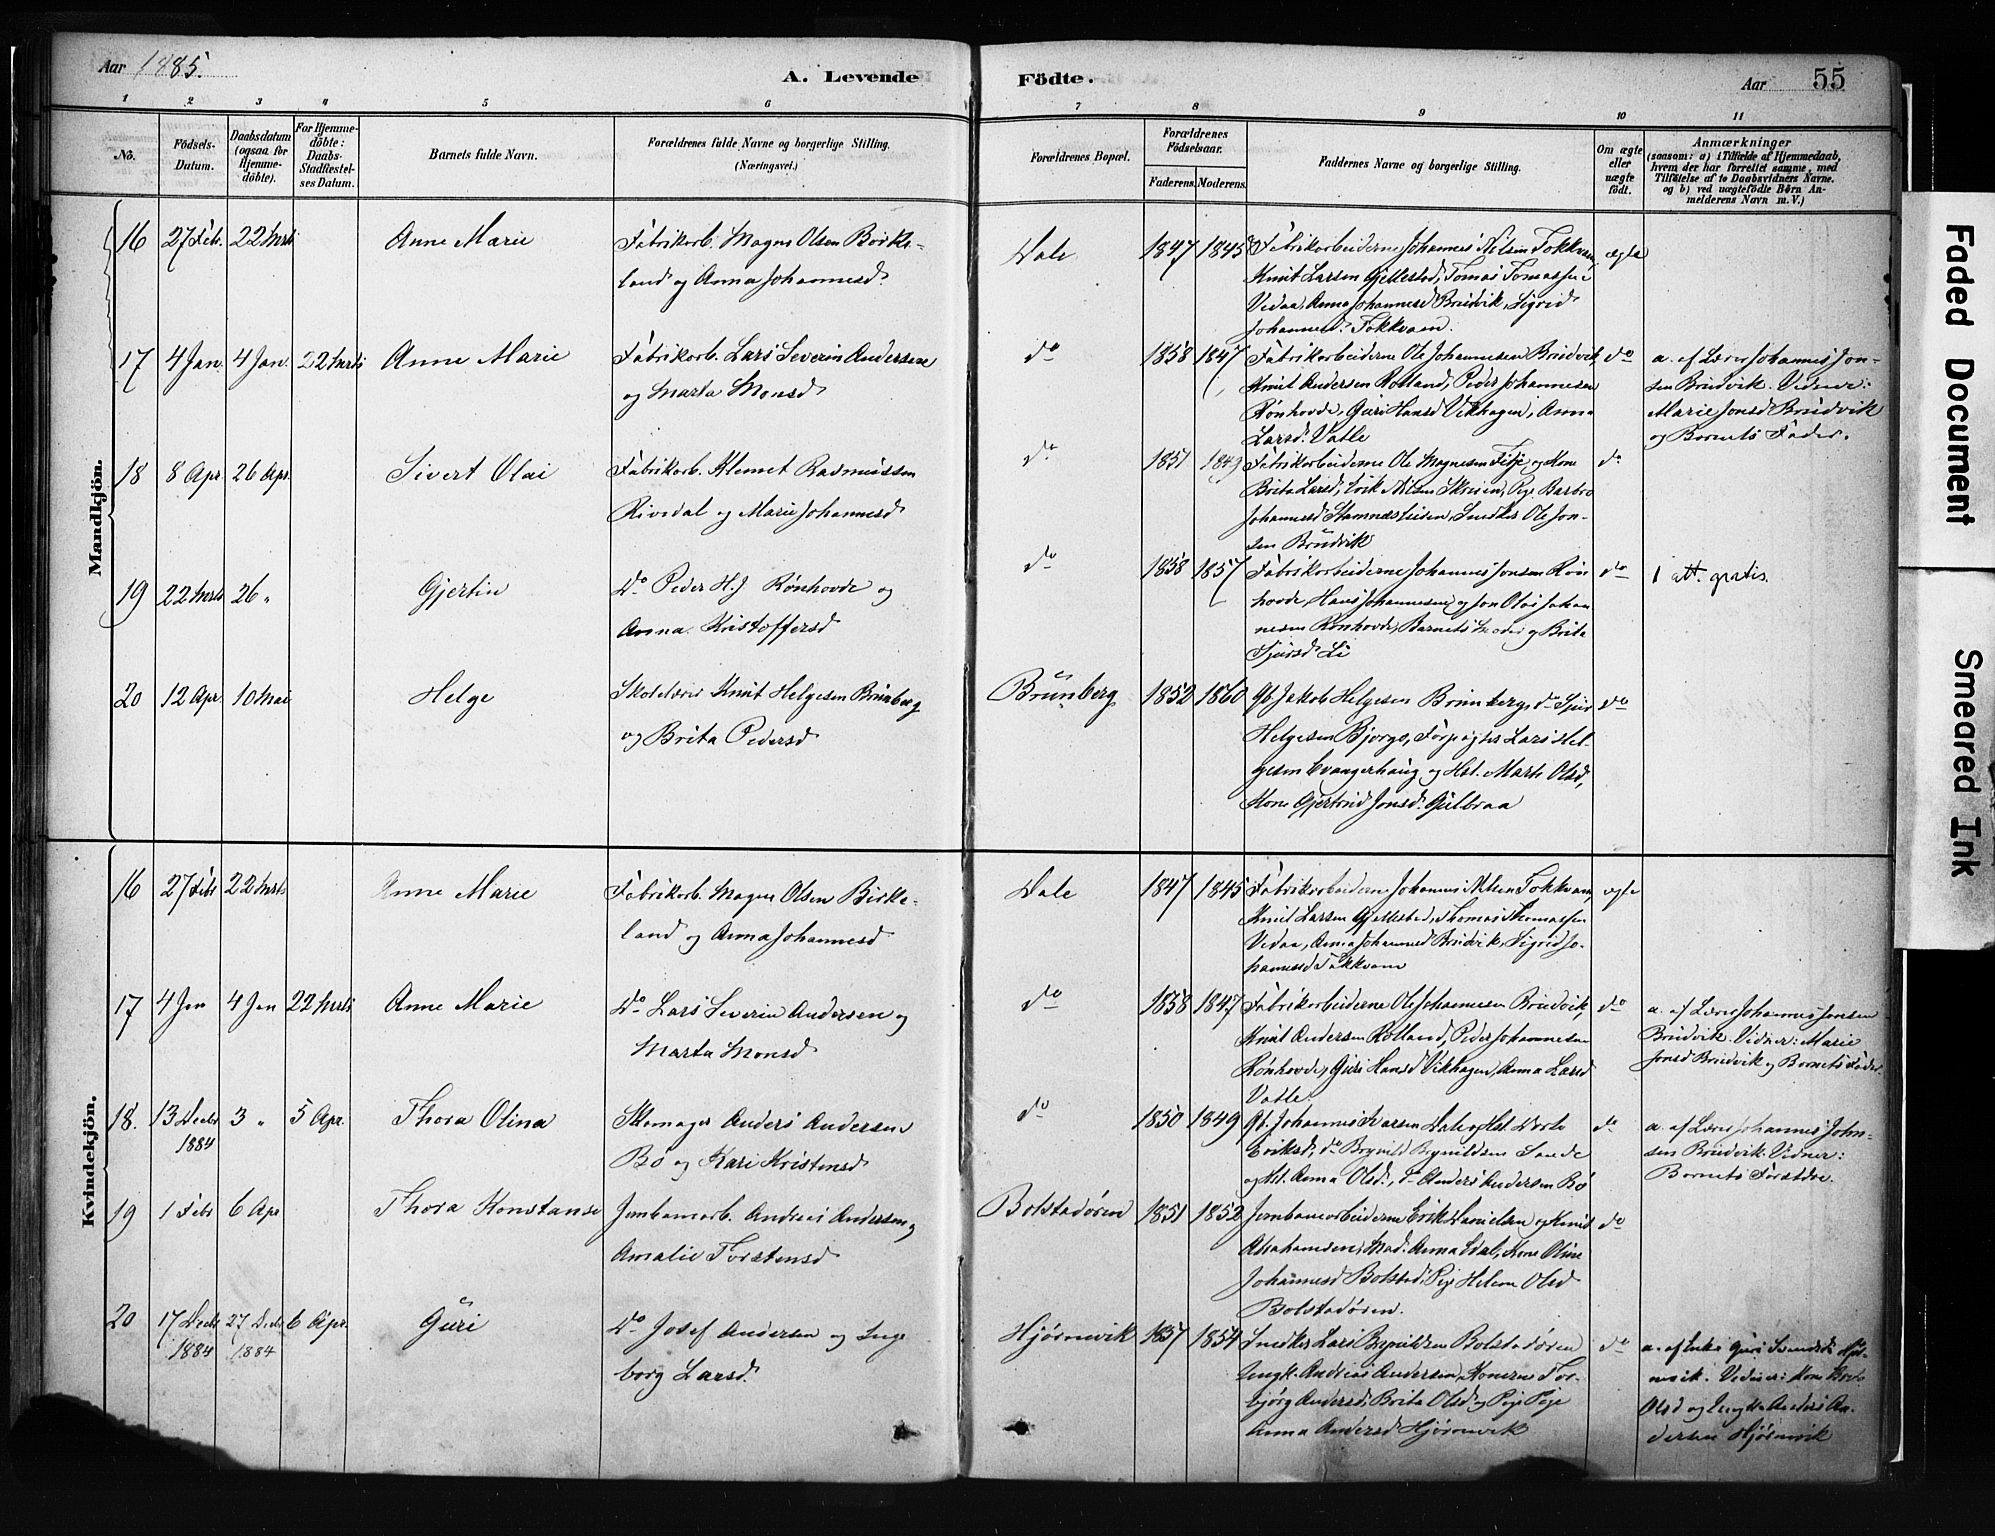 Aar 1885.
A. Levende Födte.
Aar 55
1 2 3 4 5 6 7 8 9 10 11
No.
Födsels-Datum.
Daabsdatum (ogsaa for Hjemme-döbte).
For Hjemme-döbte: Daabs-Stadfæstel-ses Datum.
Barnets fulde Navn.
Forældrenes fulde Navne og borgerlige Stilling. (Næringsvei.)
Forældrenes Bopæl.
Forældrenes Födselsaar.
Faderens. Moderens.
Faddernes Navne og borgerlige Stilling.
Om ægte eller uægte födt.
Anmærkninger (saasom: a) i Tilfælde af Hjemmedaab, hvem der har forrettet samme, med Tilföielse af to Daabsvidners Navne. og b) ved uægtefödte Börn An-melderens Navn m. V.)
Mandkjön.
16 27 Feb. 22 Marts Anne Marie
Fabrikarb. Magne Olsen Birke-
land og Anna Johannesd.
Dale 1847 1845
Fabrikarbeiderne Johannes Nilsen Fokkvam,
Knut Larsen Gjellested, Tomas Tomassen
Vedaa, Anna Johannesd Brudvik, Sigrid
Johannesd. Fokkvam.
ægte
17 4 Jan. 4 Jan. 22 Marts Anne Marie
Fabrikarb. Lars Severin Andersen
og Marta Monsd
do 1858 1847
Fabrikarbeiderne Ole Johannesen Brudvik,
Knut Andersen Rolland, Peder Johannesen
Rønhovde, Guri Hansd Vikhagen, Anna
Larsd. Vatle
do
a. af Lærer Johannes Jon-
sen Brudvik. Vidner:
Marie Jonsd Brudvik
og Barnets Fader.
18 8 Apr. 26 Apr. Sivert Olai
Fabrikarb. Klemet Rasmussen
Rivedal og Marie Johannesd
do 1851
Fabrikarbeiderne Ole Magnesen og Kone
Brita Larsd, Erik Nilsen Pige Barbro
Johannesd Snedker Ole Jon-
sen Brudvik
do
19 22 Marts 26 „ Gjertin
Do Peder H. J. Rønhovde og
Anna Kristoffersd
do 1858 1857
Fabrikarbeiderne Johannes Jonsen Røn
hovde, Hans Johannesen og Jon Olai Johan
nesen Rønhovde, Barnets Moder og Brita
Sjursd Li
do
1 att. gratis.
20 12 Apr. 10 Mai Helge
Skolelærer Knut Helgesen Brunberg
og Brita Pedersd
Brunberg 1852 1860
Gb. Jakob Helgesen Brunberg, do Sjur
Helgesen Bjorge, Forpagter Lars Hel-
gesen Evangerhaug og Hst. Marte Olsd,
Kone Gjertrud Jonsd. Gulbraa
do
Kvindekjön.
16 27 Feb 22 Marts Anne Marie
Fabrikarb. Magne Olsen Birke-
land og Anna Johannesd
Dale 1847 1845
Fabrikarbeiderne Johannes Nilsen Fokkvam,
Knut Larsen Gjellested, Thomas Thomassen
Vedaa, Anna Johannesd Brudvik, Sigrid Jo-
hannesd Fokkvam
ægte
17 4 Jan 4 Jan 22 Marts Anne Marie
Do Lars Severin Andersen og
Marta Monsd
do 1858 1847
Fabrikarbeiderne Ole Johannesen Brudvik,
Knut Andersen Rolland, Peder Johannesen
Rønhovde, Guri Hansd Vikhagen, Anna Larsd
Vatle.
do
a. af Lærer Johannes Jonsen
Brudvik. Vidner: Marie
Jonsd Brudvik og Barnets Fader.
18. 13 Decbr 1884 3 „ 5 Apr. Thora Olina
Skomager Anders Andersen
Bø og Kari Kristensd
do 1850 1849
Gb. Johannes Dale, Hst.
Eriksd, do Brynild Brynildsen
og Hst. Anna Olsd., do Anders Andersen Bø
do
a. af Lærer Johannes John-
sen Brudvik. Vidner:
Barnets Forældre.
19 1 Feb 6 Apr Thora Konstanse
Jernbanearb. Andreas Andersen og
Amalie Torstensd
Bolstadøren 1851 1852
Jernbanearbeiderne Erik Danielsen og Knud
Abrahamsen, Mad. Anna Kone Oline
Johannesd Bolstad, Pige Helene Olsd
Bolstadøren.
do
20 17 Decbr 1884 27 Decbr 1884 6 Apr. Guri
Do Josef Andersen og Inge
borg Larsd.
Hjørnevik 1857 1854
Snedker Lars Brynildsen Bolstadøren
Ungk. Andreas Andersen, Konerne Tor-
bjørg Andersd, Brita Olsd og Pige
Anna Andersd Hjørnevik
do
a. af Enke Guri
Vidner: Kone
Olsd og Ungk. Anders An-
dersen Hjørnevik
Faded Document
Smeared Ink